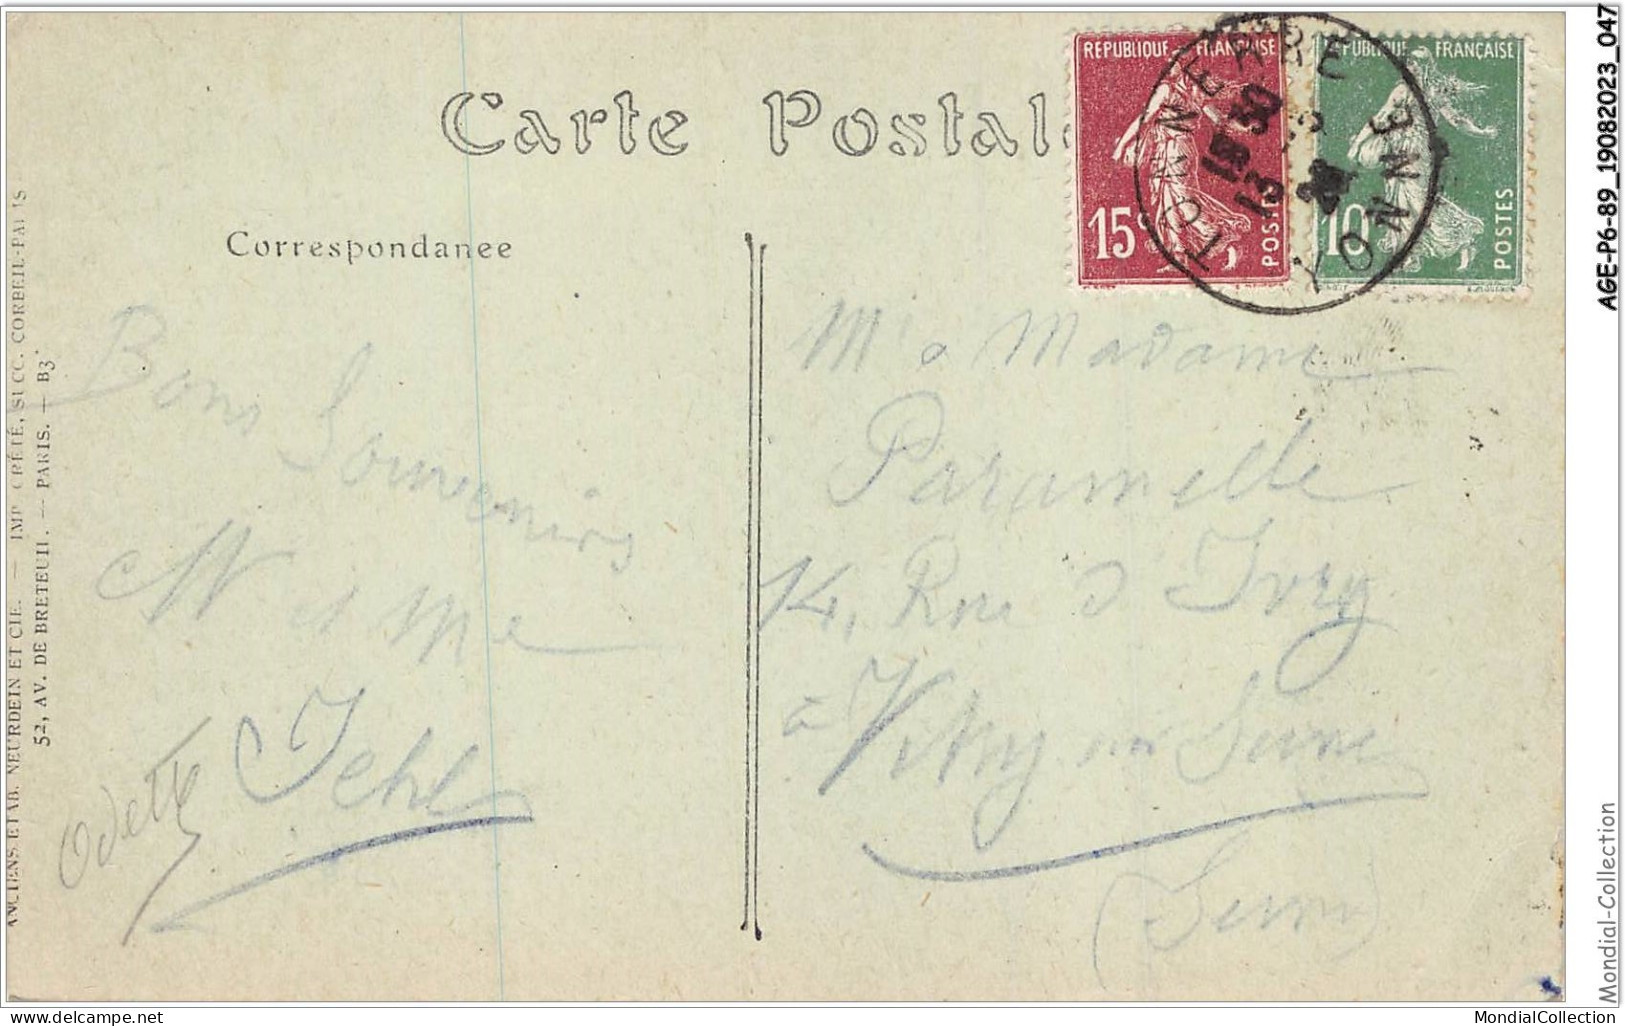 Carte Postale
Correspondance
REPUBLIQUE FRANÇAISE
15c
POSTES
REPUBLIQUE FRANÇAISE
10c
POSTES
TONNERRE
YONNE
13
Bons
Souvenirs
M et Me
Jehl
Odette
Mr & Madame
Paramelle
14, Rue d'Ivry
à Vitry sur Seine
(Seine)
ANCIENS ETAB. NEURDEIN ET CIE. — IMP. CRÉTÉ, SUCC. CORBEIL-PARIS
52, AV. DE BRETEUIL. — PARIS. — B3
AGE-P6-89_19082023_047
Mondial-Collection
www.delcampe.net
MondialCollection